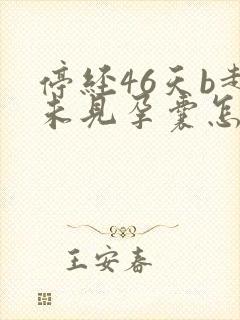 停经46天b
未见孕囊怎
王安春